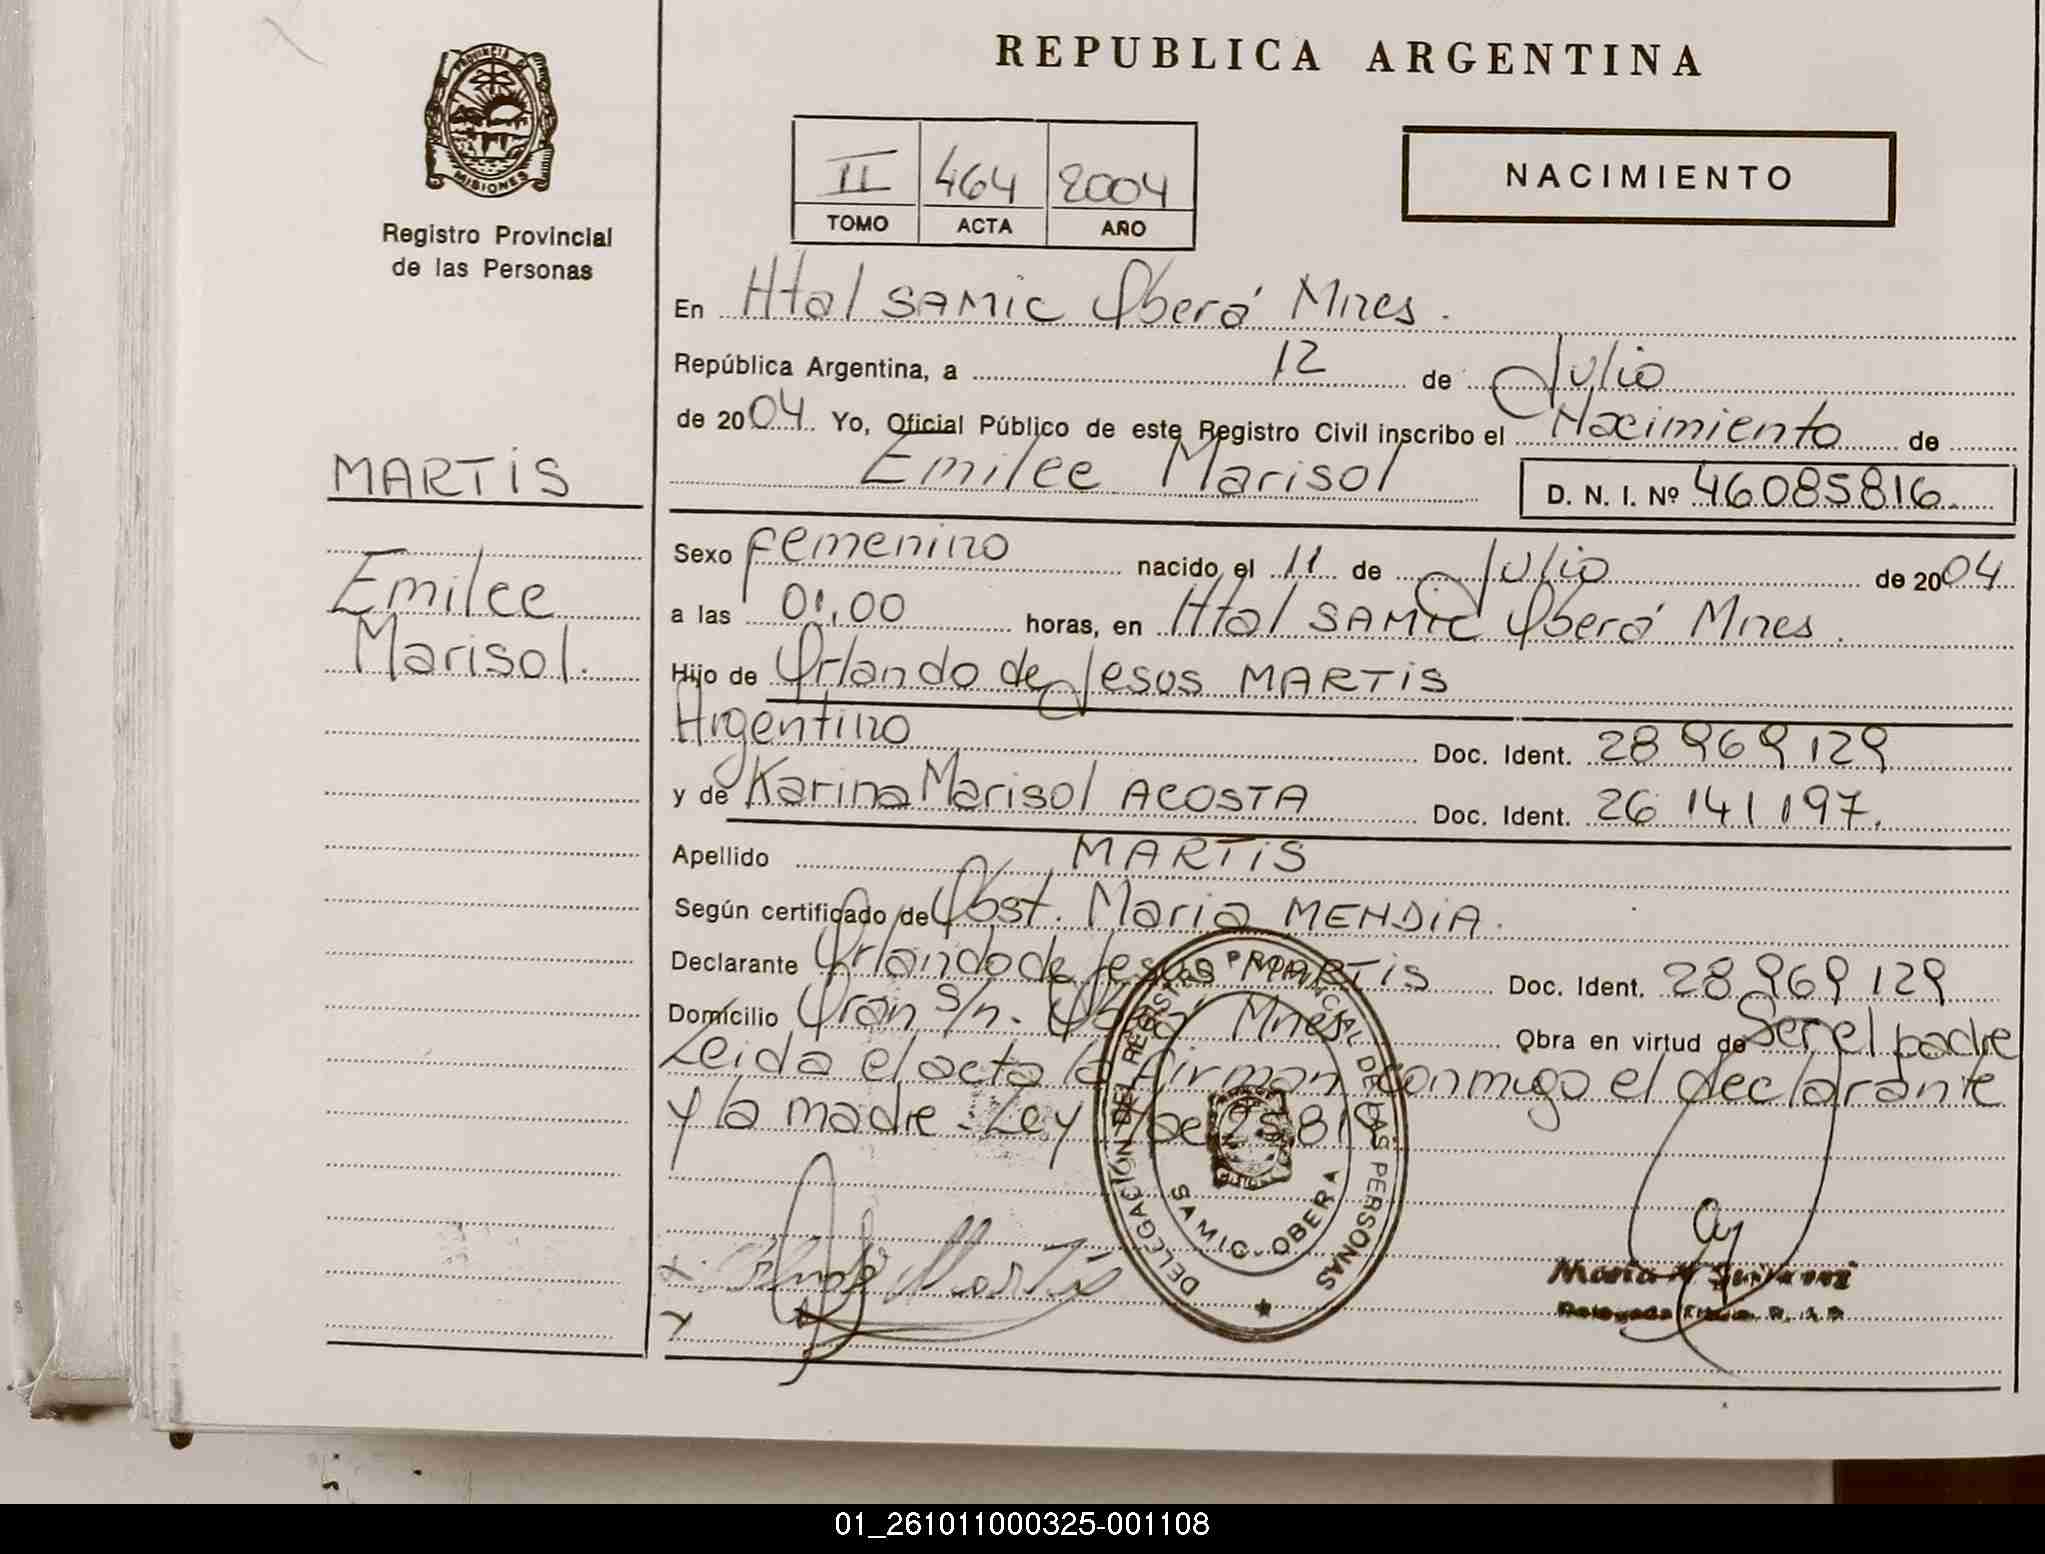 REPUBLICA ARGENTINA
PROVINCIA DE
MISIONES
Registro Provincial
de las Personas
II 464 2004
TOMO ACTA AÑO
NACIMIENTO
En Htal SAMiC Oberá Mnes.
República Argentina, a 12 de Julio
de 2004 Yo, Oficial Público de este Registro Civil inscribo el Nacimiento de
Emilee Marisol D. N. I. Nº 46085816.
MARTiS
Emilee
Marisol.
Sexo femenino nacido el 11 de Julio de 2004
a las 01,00 horas, en Htal SAMiC Oberá Mnes.
Hijo de Orlando de Jesus MARTiS
Argentino Doc. Ident. 28 969 129
y de Karina Marisol ACOSTA Doc. Ident. 26 141 197.
Apellido MARTiS
Según certificado de Obst. Maria MENDiA.
Declarante Orlando de Jesus MARTiS Doc. Ident. 28 969 129
Domicilio Oran s/n. Oberá Mnes Obra en virtud de Ser el padre
Leida el acta la firman conmigo el declarante
y la madre. Ley 25819
DELEGACIÓN DEL REGISTRO PROVINCIAL DE LAS PERSONAS
SAMIC - OBERA
Maria
01_261011000325-001108